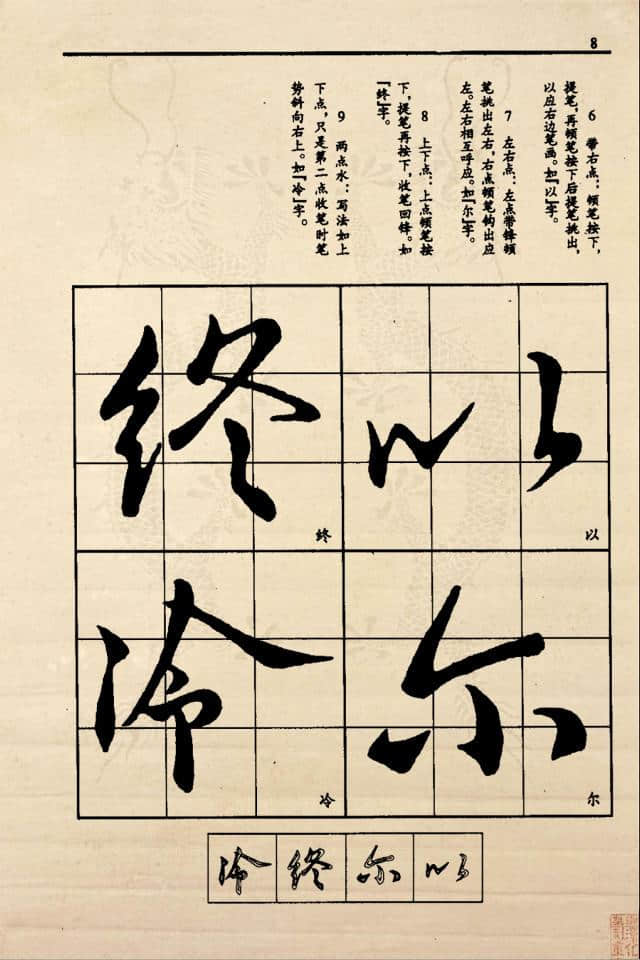 8
6 带右点：顿笔按下，
提笔，再顿笔按下后提笔挑出，
以应右边笔画。如『以』字。
7 左右点：左点带锋顿
笔挑出左右，右点顿笔钩出应
左。左右相互呼应。如『尔』字。
8 上下点：上点顿笔按
下，提笔再按下，收笔回锋。如
『终』字。
9 两点水：写法如上
下点，只是第二点收笔时笔
势斜向右上。如『冷』字。
以
以
终
終
尔
尔
冷
冷
以
尔
终
冷